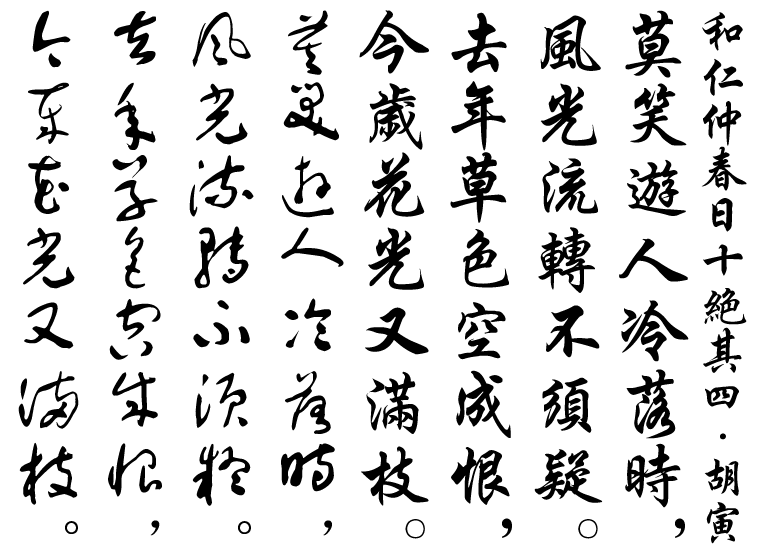 和仁仲春日十絶其四·胡寅
莫笑遊人冷落時，
風光流轉不須疑。
去年草色空成恨，
今歲花光又滿枝。
莫笑遊人冷落時，
風光流轉不須疑。
去年草色空成恨，
今歲花光又滿枝。